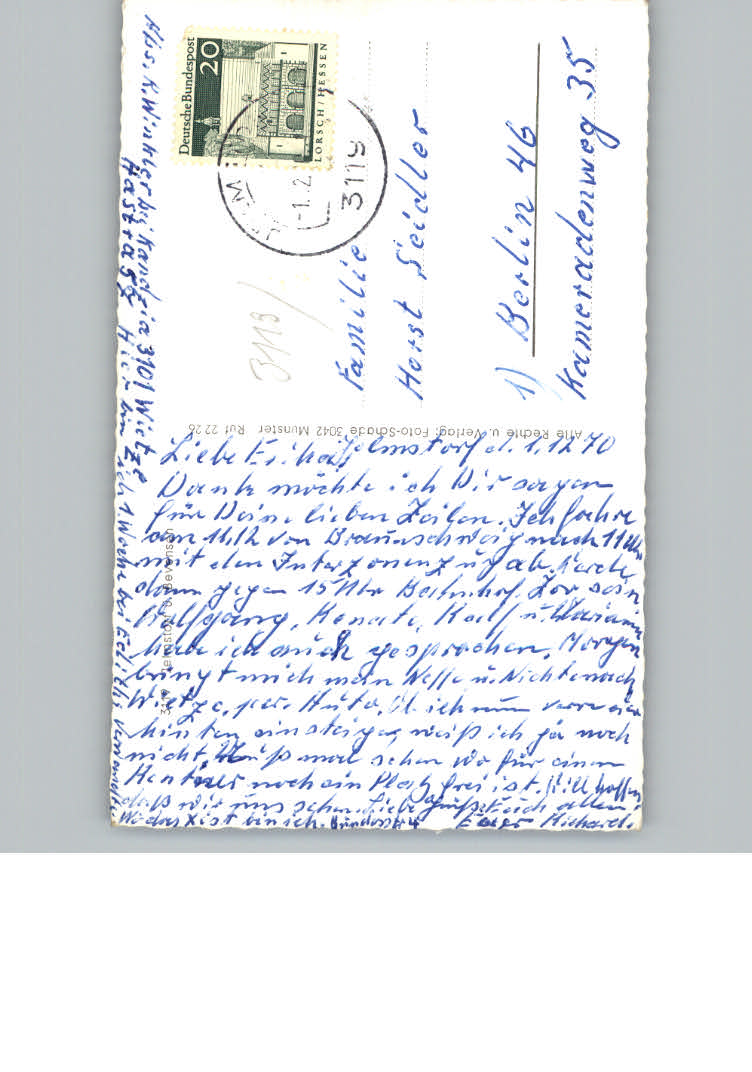 Abs. R. Winkler bei Kandzia 3101 Wietze
Hier bin ich 1 Woche bei
Deutsche Bundespost
20
LORSCH / HESSEN
-1.12
3119
3119/
Familie
Horst Seidler
1) Berlin 46
Kameradenweg 35
Alle Rechte u. Verlag: Foto-Schade 3042 Munster Ruf 22 26
3119 Jelmstorf ü. Bevensen
Liebe Erika! Jelmstorf d. 1.12 70
Dank möchte ich Dir sagen
für Deine lieben Zeilen. Ich fahre
am 11.12 von Braunschweig nach 11 Uhr
mit den Interzonenzug ab. werde
dann gegen 15 Uhr Bahnhof. Zoo sein
Wolfgang, Renate, Ralf u. Mariann
habe ich auch gesprochen. Morgen
bringt mich mein Neffe u. Nichte nach
Wietze, per. Auto. Ob ich nun vorn oder
hinten einsteige, weiß ich ja noch
nicht. Muß mal sehen wo für einen
noch ein Platz frei ist. Will hoffen
daß wir uns sehen. Liebe Grüße Euch allen
Wo das X ist bin ich. Euer Richard.